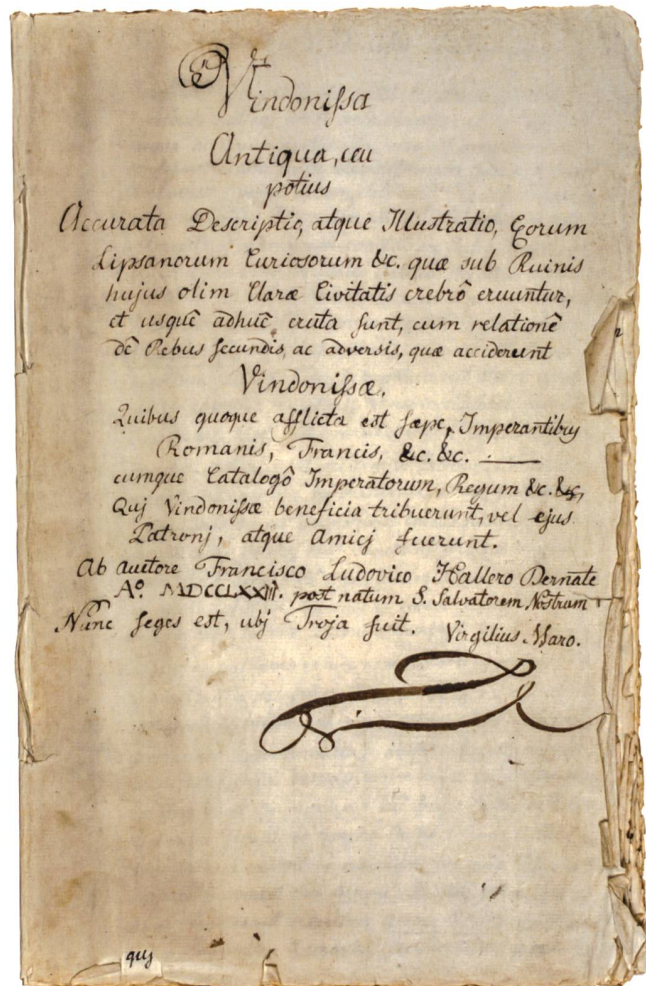 Vindonissa
Antiqua, ceu
potius
Accurata Descriptio, atque Illustratio, Eorum
Lipsanorum Curiosorum &c. quæ sub Ruinis
hujus olim Claræ Civitatis crebrô eruuntur,
et usquê adhuc eruta sunt, cum relationê
dê Rebus secundis, ac adversis, quæ acciderunt
Vindonissæ.
Quibus quoque afflicta est sæpe, Imperantibus
Romanis, Francis, &c. &c. —
cumque Catalogô Imperatorum, Regum &c. &c,
Quj Vindonissæ beneficia tribuerunt, vel ejus
Patronj, atque Amicj fuerunt.
Ab auctore Francisco Ludovico Hallero Bernate
Aº. MDCCLXXIII. post natum S. Salvatorem Nostrum
Nunc seges est, ubj Troja fuit. Virgilius Maro.